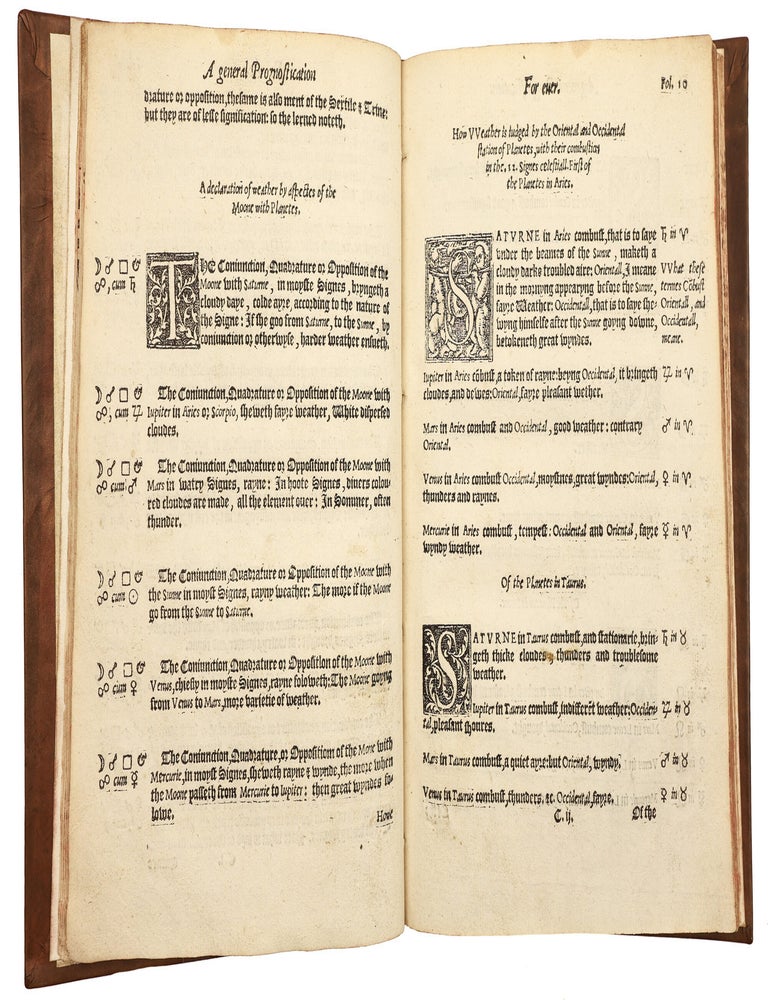 A general Prognostication
drature or opposition, thesame is also ment of the Sextile & Trine:
but they are of lesse signification: so the lerned noteth.
A declaration of weather by aspectes of the
Moone with Planetes.
☽ ☌ □ ☍, cum ♄
THe Coniunction, Quadrature or Opposition of the
Moone with Saturne, in moyste Signes, bryngeth a
cloudy daye, colde ayre, according to the nature of
the Signe: If she goo from Saturne, to the Sunne, by
coniunction or otherwyse, harder weather ensueth.
☽ ☌ □ &
☍, cum ♃
The Coniunction, Quadrature or Opposition of the Moone with
Iupiter in Aries or Scorpio, sheweth fayre weather, White dispersed
cloudes.
☽ ☌ □ &
☍ cum ♂
The Coniunction, Quadrature or Opposition of the Moone with
Mars in watry Signes, rayne: In hoote Signes, divers colou-
red cloudes are made, all the element over: In Sommer, often
thunder.
☽ ☌ □ &
☍ cum ☉
The Coniunction, Quadrature or Opposition of the Moone with
the Sunne in moyst Signes, rayny weather: The more if the Moone
go from the Sunne to Saturne.
☽ ☌ □ &
☍ cum ♀
The Coniunction, Quadrature or Opposition of the Moone with
Venus, chiefly in moyste Signes, rayne foloweth: The Moone goyng
from Venus to Mars, more varietie of weather.
☽ ☌ □ &
☍ cum ☿
The Coniunction, Quadrature, or Oppositiom of the Mone with
Mercurie, in moyst Signes, sheweth rayne & wynde, the more when
the Moone passeth from Mercurie to Iupiter: then great wyndes fo-
lowe.
Howe
For euer.
Fol. 10
How VVeather is iudged by the Oriental and Occidental
station of Planetes, vith their combustion
in the .12. Signes celestiall. First of
the Planetes in Aries.
SATVRNE in Aries combust, that is to saye
vnder the beames of the Sunne, maketh a
cloudy darke troubled aire: Orientall, I meane
in the mornyng appearyng before the Sunne,
fayre Weather: Occidentall, that is to saye she-
wyng himselfe after the Sunne goyng downe,
betokeneth great wyndes.
♄ in ♈
VVhat these
termes Cõbust
Orientall, and
Occidentall,
meane.
Iupiter in Aries cõbust, a token of rayne: beyng Occidental, it bringeth
cloudes, and dewes: Oriental, fayre pleasant wether.
♃ in ♈
Mars in Aries combust and Occidental, good weather: contrary
Oriental.
♂ in ♈
Venus in Aries combust Occidental, moystnes, great wyndes: Oriental,
thunders and raynes.
♀ in ♈
Mercurie in Aries combust, tempest: Occidental and Oriental, fayre
wyndy weather.
☿ in ♈
Of the Planetes in Taurus.
SATVRNE in Taurus combust, and stationarie, brin-
geth thicke cloudes, thunders and troublesome
weather.
♄ in ♉
Iupiter in Taurus combust, indifferẽt weather: Occiden-
tal, pleasant shoures.
♃ in ♉
Mars in Taurus combust, a quiet ayre: but Oriental, wyndy.
♂ in ♉
Venus in Taurus combust, thunders. &c. Occidental, fayre.
♀ in ♉
C. ij.
Of the